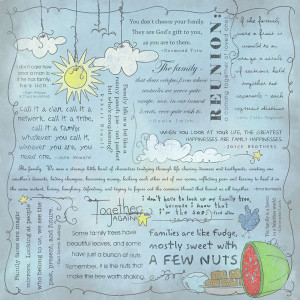 You don't choose your family.
They are God's gift to you,
as you are to them.
~Desmond Tutu
REUNION:
if the family
were a fruit it
would be an
orange a circle
of sections held
together but
separate - each
segment distinct
I don't care how
poor a man is;
if he has family,
he's rich.
The family
Call it a clan, call it a
network, call it a tribe,
call it a family.
Whatever you call it,
whoever you are, you
need one. ~Jane Howard
WHEN YOU LOOK AT YOUR LIFE, THE GREATEST
HAPPINESSES ARE FAMILY HAPPINESSES.
~JOYCE BROTHERS
The family. We were a strange little band of characters trudging through life sharing diseases and toothpaste, coveting one
another's desserts, hiding shampoo, borrowing money, locking each other out of our rooms, inflicting pain and kissing to heal it in
the same instant, loving, laughing, defending, and trying to figure out the common thread that bound us all together.
Together
again
I don't have to look up my family tree,
because I know that
I'm the sap.
Some family trees have
beautiful leaves, and some
have just a bunch of nuts.
Remember, it is the nuts that
make the tree worth shaking.
Families are like fudge,
mostly sweet with
A FEW NUTS
Family faces are magic
mirrors. Looking at people
who belong to us, we see the
past, present, and future.